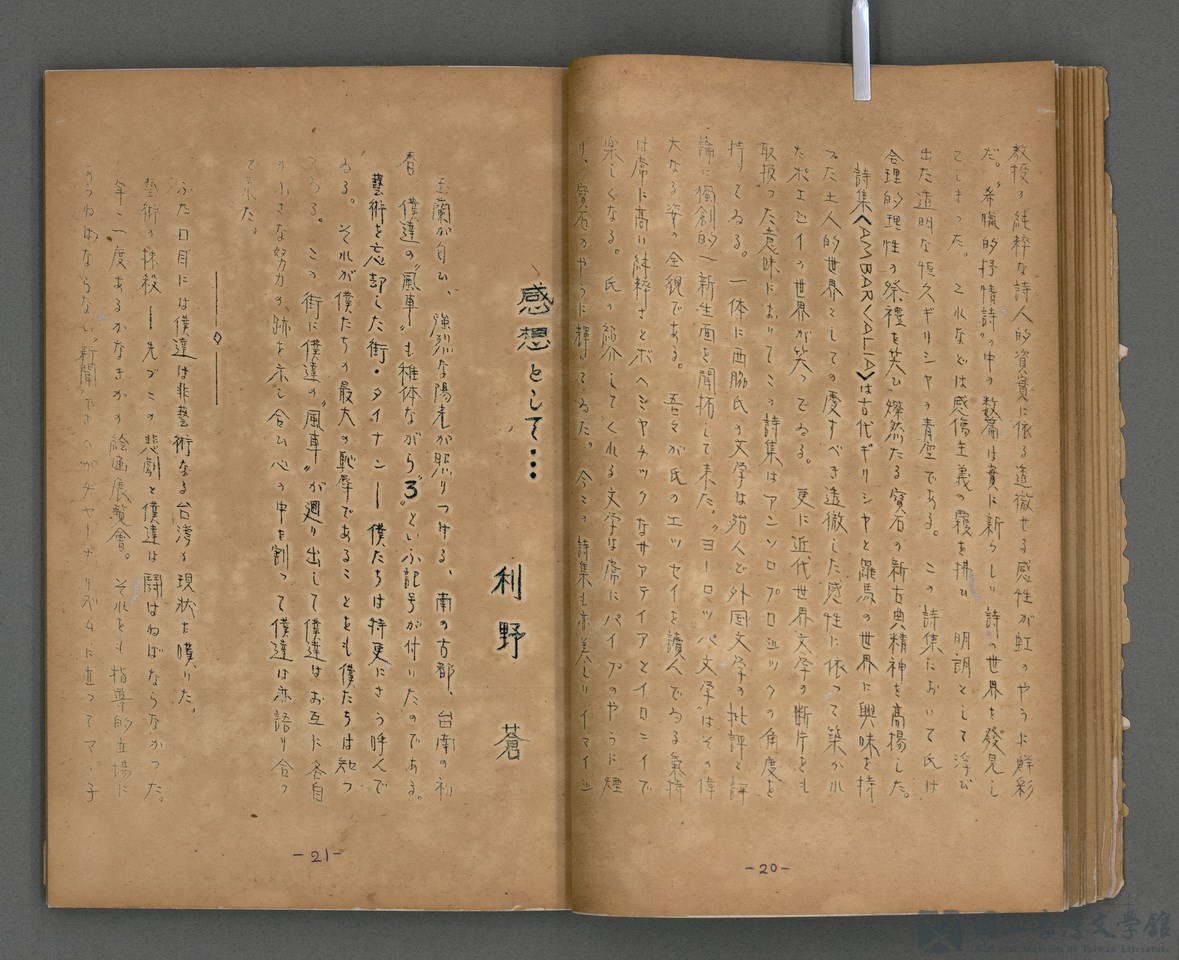 教授の純粋な詩人的資質に依る透徹せる感性が虹のやうに鮮彩
だ。〝希臘的抒情詩〟の中の数篇は實に新らしい詩の世界を發見し
てしまった。これなどは感傷主義の霧を拂ひ 明調として浮び
出た透明な恒久ギリシャの青空である。 この詩集において氏は
合理的理性の祭禮を笑ひ燦然たる寶石の新古典精神を高揚した。
詩集<AMBARVALIA>は古代ギリシヤと羅馬の世界に興味を持
つた土人的世界としての愛すべき透徹した感性に依つて築かれ
たポエジイの世界が笑つてゐる。 更に近代世界文学の断片をも
取扱つた意味においてこの詩集はアンソロプロジックの角度を
持てゐる。一体に西脇氏の文学は殆んど外国文学の批評と評
論に獨創的な新生面を開拓して来た。〝ヨーロッパ文学〟はその偉
大なる姿の全貌である。吾々が氏のエッセイを讀んでゐる氣持
は常に高い純粋さとボヘミヤチックなサアテイアとイロニイで
楽しくなる。氏の紹介してくれる文学は常にパイプのやうに煙
り、寶石のやうに輝いてゐた。今この詩集も亦美しいイマイジ
-20-
感想として・・・
利野 蒼
玉蘭が匂ひ、強烈な陽光が照りつける、南の古都、台南の初
春 僕達の〝風車〟も稚体ながら〝3〟といふ記号が付いたのである。
藝術を忘却した街・タイナン― 僕たちは特更にさう呼んで
ゐる。それが僕たちの最大の恥辱であることをも僕たちは知つ
てゐる。この街に僕達の〝風車〟が廻り出して僕達はお互に各自
の小さな努力の跡を示し合ひ心の中を割つて僕達は亦語り合つ
て来た。
―◇―
ふた口目には僕達は非藝術なる台湾の現状を嘆いた。
藝術の抹殺―先づこの悲劇と僕達は闘はねばならなかつた。
年に一度あるかなきかの絵画展覧會。それをも指導的立場に
あらねばならない〝新聞〟でさへがヂャーナリズムに立つてマ・子
-21-